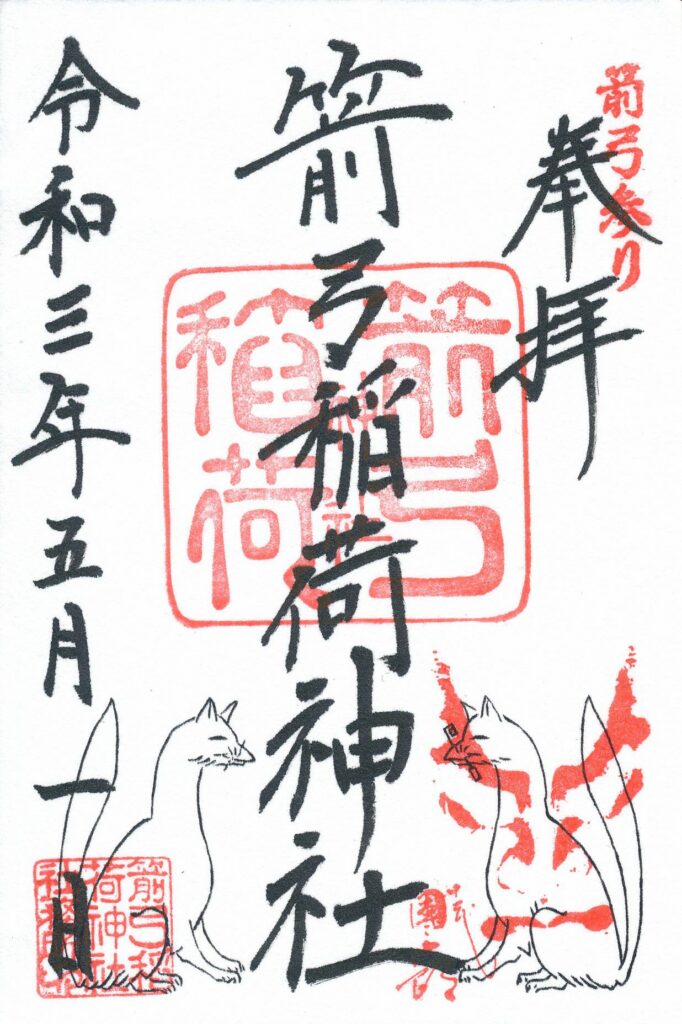 箭弓参り
奉拝
箭弓稲荷神社
箭弓
神社
稲荷
令和三年五月一日
箭弓稲
荷神社